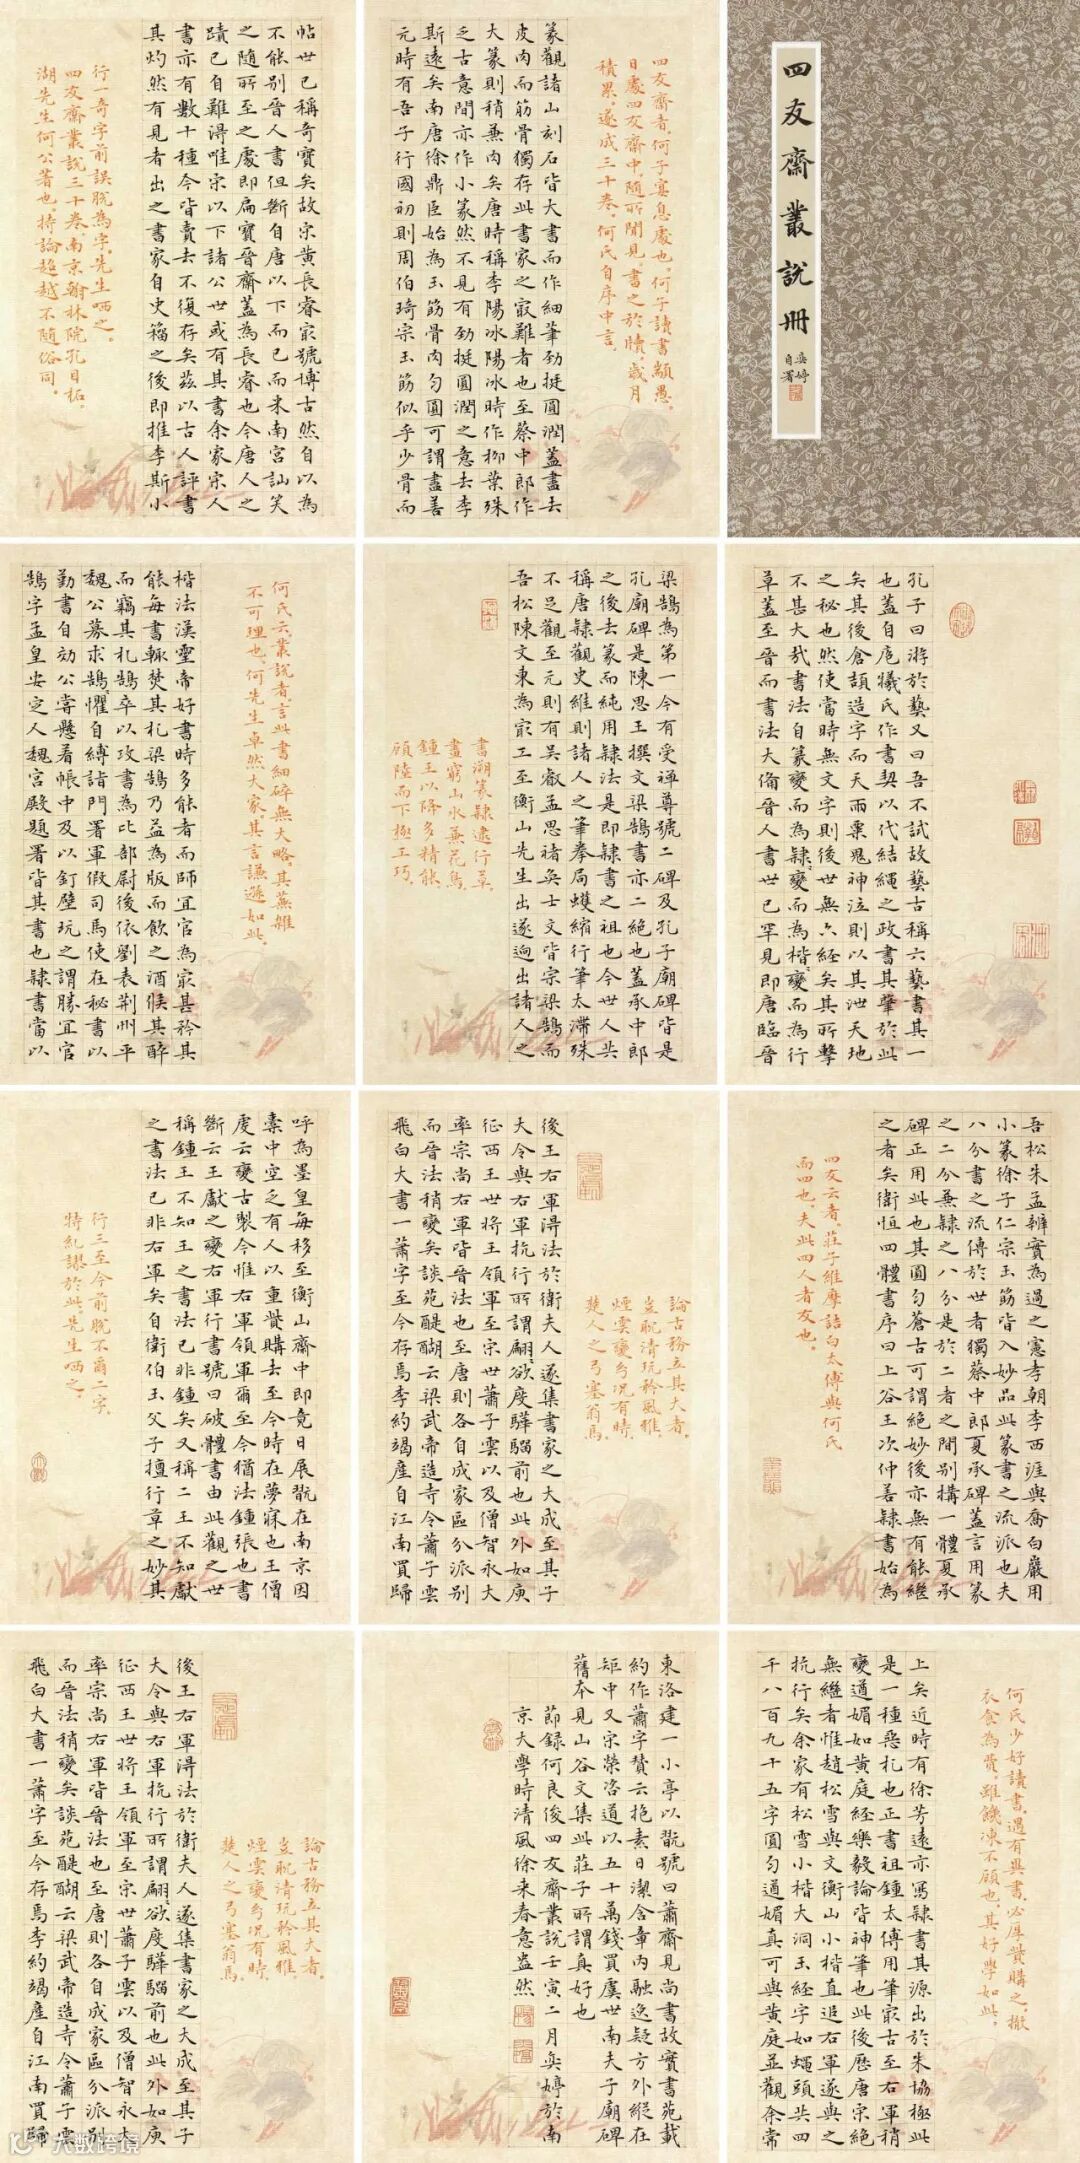 四友齋叢說冊
奕婷
自署
四友齋者何子宴息處也何子讀書顓愚
日處四友齋中隨所聞見書之於牘歲月
積累遂成三十卷何氏自序中言
篆觀諸山刻石皆大書而作細筆勁挺圓潤蓋盡去
皮肉而筋骨獨存此書家之㝡難者也至蔡中郎作
大篆則稍兼肉矣唐時稱李陽冰陽冰時作柳葉殊
乏古意間亦作小篆然不見有勁挺圓潤之意去李
斯遠矣南唐徐鼎臣始為玉筯骨肉勻圓可謂盡善
元時有吾子行國初則周伯琦宗玉筯似乎少骨而
帖世已稱奇寶矣故宋黃長睿㝡號博古然自以為
不能別晉人書但斷自唐以下而已而米南宮訕笑
之隨所至之處即扁寶晉齋蓋為長睿也今唐人之
蹟已自難得唯宋以下諸公世或有其書余家宋人
書亦有數十種今皆賣去不復存矣茲以古人評書
其灼然有見者出之書家自史籀之後即推李斯小
行一奇字前誤脫為字先生哂之
四友齋叢說三十卷南京翰林院孔目柘
湖先生何公著也持論超越不隨俗同
孔子曰游於藝又曰吾不試故藝古稱六藝書其一
也蓋自庖犧氏作書契以代結繩之政書其肇於此
矣其後倉頡造字而天雨粟鬼神泣則以其泄天地
之秘也然使當時無文字則後世無六經矣其所擊
不甚大哉書法自篆變而為隸變而為楷變而為行
草蓋至晉而書法大備晉人書世已罕見即唐臨晉
梁鵠為第一今有受禪尊號二碑及孔子廟碑皆是
孔廟碑是陳思王撰文梁鵠書亦二絕也蓋承中郎
之後去篆而純用隸法是即隸書之祖也今世人共
稱唐隸觀史維則諸人之筆拳局蠖縮行筆太滯殊
不足觀至元則有吳叡孟思褚奐士文皆宗梁鵠而
吾松陳文東為㝡工至衡山先生出遂迥出諸人之
書溯篆隸逮行草
畫窮山水兼花鳥
鍾王以降多精能
顧陸而下極工巧
何氏云叢說者言此書細碎無大略其蕪雜
不可理也何先生卓然大家其言謙遜如此
楷法漢靈帝好書時多能者而師宜官為㝡甚矜其
能每書輒焚其札梁鵠乃益為版而飲之酒候其醉
而竊其札鵠卒以攻書為比部尉後依劉表荊州平
魏公募求鵠懼自縛詣門署軍假司馬使在秘書以
勤書自効公嘗懸着帳中及以釘壁玩之謂勝宜官
鵠字孟皇安定人魏宮殿題署皆其書也隸書當以
吾松朱孟辨實為過之憲孝朝李西涯與喬白巖用
小篆徐子仁宗玉筯皆入妙品此篆書之流派也夫
八分書之流傳於世者獨蔡中郎夏承碑蓋言用篆
之二分兼隸之八分是於二者之間別構一體夏承
碑正用此也其圓勻蒼古可謂絕妙後亦無有能繼
之者矣衛恒四體書序曰上谷王次仲善隸書始為
四友云者莊子維摩詰白太傅與何氏
而四也夫此四人者友也
論古務立其大者
豈耽清玩矜風雅
煙雲變幻況有時
楚人之弓塞翁馬
後王右軍得法於衛夫人遂集書家之大成至其子
大令與右軍抗行所謂翩欲度驊騮前也此外如庾
征西王世將王領軍至宋世蕭子雲以及僧智永大
率宗尚右軍皆晉法也至唐則各自成家區分派別
而晉法稍變矣談苑醍醐云梁武帝造寺令蕭子雲
飛白大書一蕭字至今存焉李約竭產自江南買歸
呼為墨皇每移至衡山齋中即竟日展翫在南京因
橐中空乏有人以重貲購去至今時在夢寐也王僧
虔云變古製今惟右軍領軍爾至今猶法鍾張也書
斷云王獻之變右軍行書號曰破體書由此觀之世
稱鍾王不知王之書法已非鍾矣又稱二王不知獻
之書法已非右軍矣自衛伯玉父子擅行草之妙其
行三至今前脫不爾二字
特紀謬於此先生哂之
何氏少好讀書遇有異書必厚貲購之撤
衣食為費雖饑凍不顧也其好學如此
上矣近時有徐芳遠亦寫隸書其源出於朱協極此
是一種惡札也正書祖鍾太傅用筆㝡古至右軍稍
變遒媚如黃庭經樂毅論皆神筆也此後歷唐宋絕
無繼者惟趙松雪與文衡山小楷直追右軍遂與之
抗行矣余家有松雪小楷大洞玉經字如蠅頭共四
千八百九十五字圓勻遒媚真可與黃庭並觀余常
東洛建一小亭以翫號曰蕭齋見尚書故實書苑載
約作蕭字贊云抱素日潔含章內融逸疑方外縱在
矩中又宋榮咨道以五十萬錢買虞世南夫子廟碑
舊本見山谷文集此莊子所謂真好也
節錄何良俊四友齋叢說壬寅二月奕婷於南
京大學時清風徐来春意盎然
論古務立其大者
豈耽清玩矜風雅
煙雲變幻況有時
楚人之弓塞翁馬
後王右軍得法於衛夫人遂集書家之大成至其子
大令與右軍抗行所謂翩欲度驊騮前也此外如庾
征西王世將王領軍至宋世蕭子雲以及僧智永大
率宗尚右軍皆晉法也至唐則各自成家區分派別
而晉法稍變矣談苑醍醐云梁武帝造寺令蕭子雲
飛白大書一蕭字至今存焉李約竭產自江南買歸
大数跨境